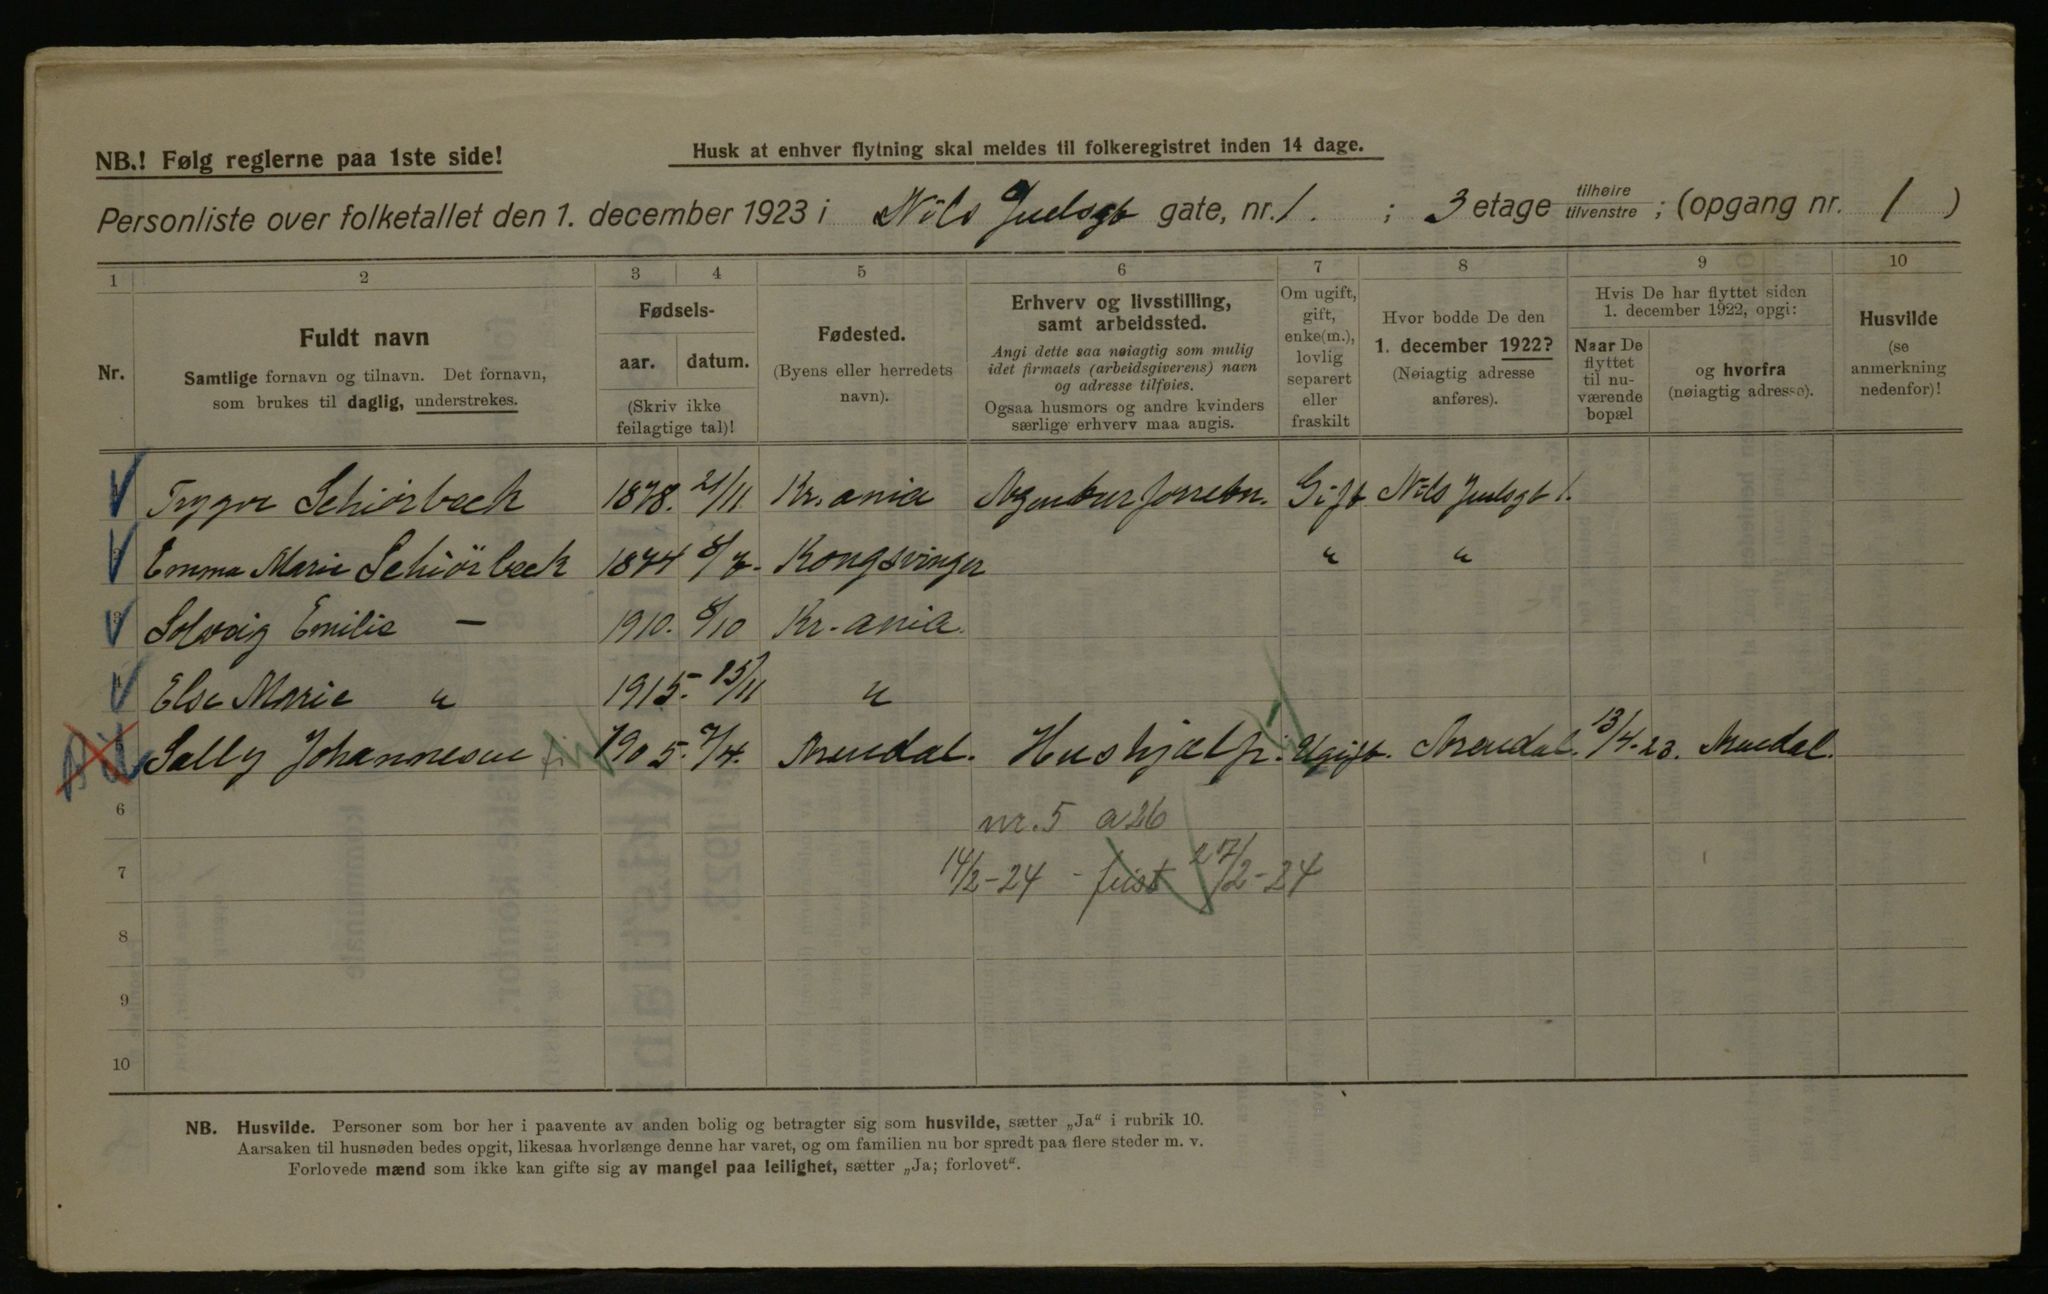 NB.! Følg reglerne paa 1ste side!
Husk at enhver flytning skal meldes til folkeregistret inden 14 dage.
Personliste over folketallet den 1. december 1923 i Nils Juelsgt gate, nr. 1. ; 3 etage tilhøire tilvenstre ; (opgang nr. 1 )
1 2 3 4 5 6 7 8 9 10
Nr.
Fuldt navn
Samtlige fornavn og tilnavn. Det fornavn,
som brukes til daglig, understrekes.
Fødsels-
aar. datum.
(Skriv ikke
feilagtige tal)!
Fødested.
(Byens eller herredets
navn).
Erhverv og livsstilling,
samt arbeidssted.
Angi dette saa nøiagtig som mulig
idet firmaets (arbeidsgiverens) navn
og adresse tilføies.
Ogsaa husmors og andre kvinders
særlige erhverv maa angis.
Om ugift,
gift,
enke(m.),
lovlig
separert
eller
fraskilt
Hvor bodde De den
1. december 1922?
(Nøiagtig adresse
anføres).
Hvis De har flyttet siden
1. december 1922, opgi:
Naar De
flyttet
til nu-
værende
bopæl
og hvorfra
(nøiagtig adresse).
Husvilde
(se
anmerkning
nedenfor)!
Trygve Schiørbeck 1878. 21/11 Kr.ania Agenturforretn. Gift Nils Juelsgt 1.
Emma Marie Schiörbeck 1874 Kongsvinger " "
Solveig Emilie — 1910. 8/10 Kr.ania.
Else Marie " 1915. 15/11 "
Sally Johannesen 1905. 7/4. Arendal. Hushjælp. Ugift. Arendal. 13/4-23. Arendal.
6 nr. 5 a26
7 14/2-24 - 27/2-24
8
9
10
NB. Husvilde. Personer som bor her i paavente av anden bolig og betragter sig som husvilde, sætter „Ja“ i rubrik 10.
Aarsaken til husnøden bedes opgit, likesaa hvorlænge denne har varet, og om familien nu bor spredt paa flere steder m. v.
Forlovede mænd som ikke kan gifte sig av mangel paa leilighet, sætter „Ja; forlovet“.